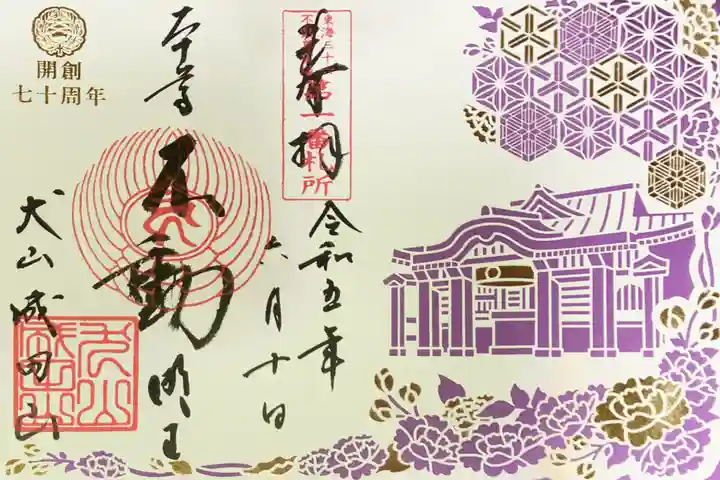 奉拝
東海三十六
不動尊
第一番札所
令和五年
六月十日
本尊
不動明王
犬山成田山
開創
七十周年